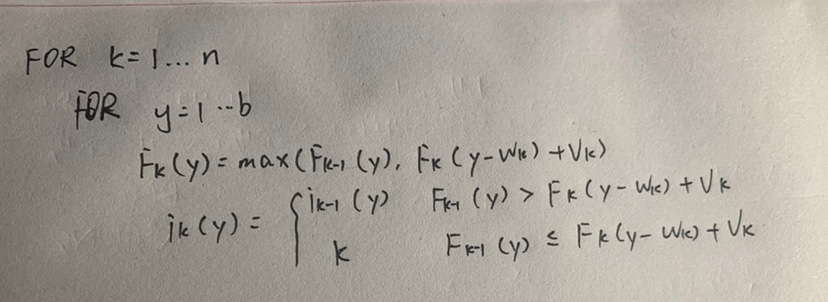 FOR k=1...n
FOR y=1...b
Fk(y)=max(Fk-1(y), Fk(y-Wk)+Vk)
ik(y)= { ik-1(y) Fk-1(y) > Fk(y-Wk)+Vk
k Fk-1(y) ≤ Fk(y-Wk)+Vk